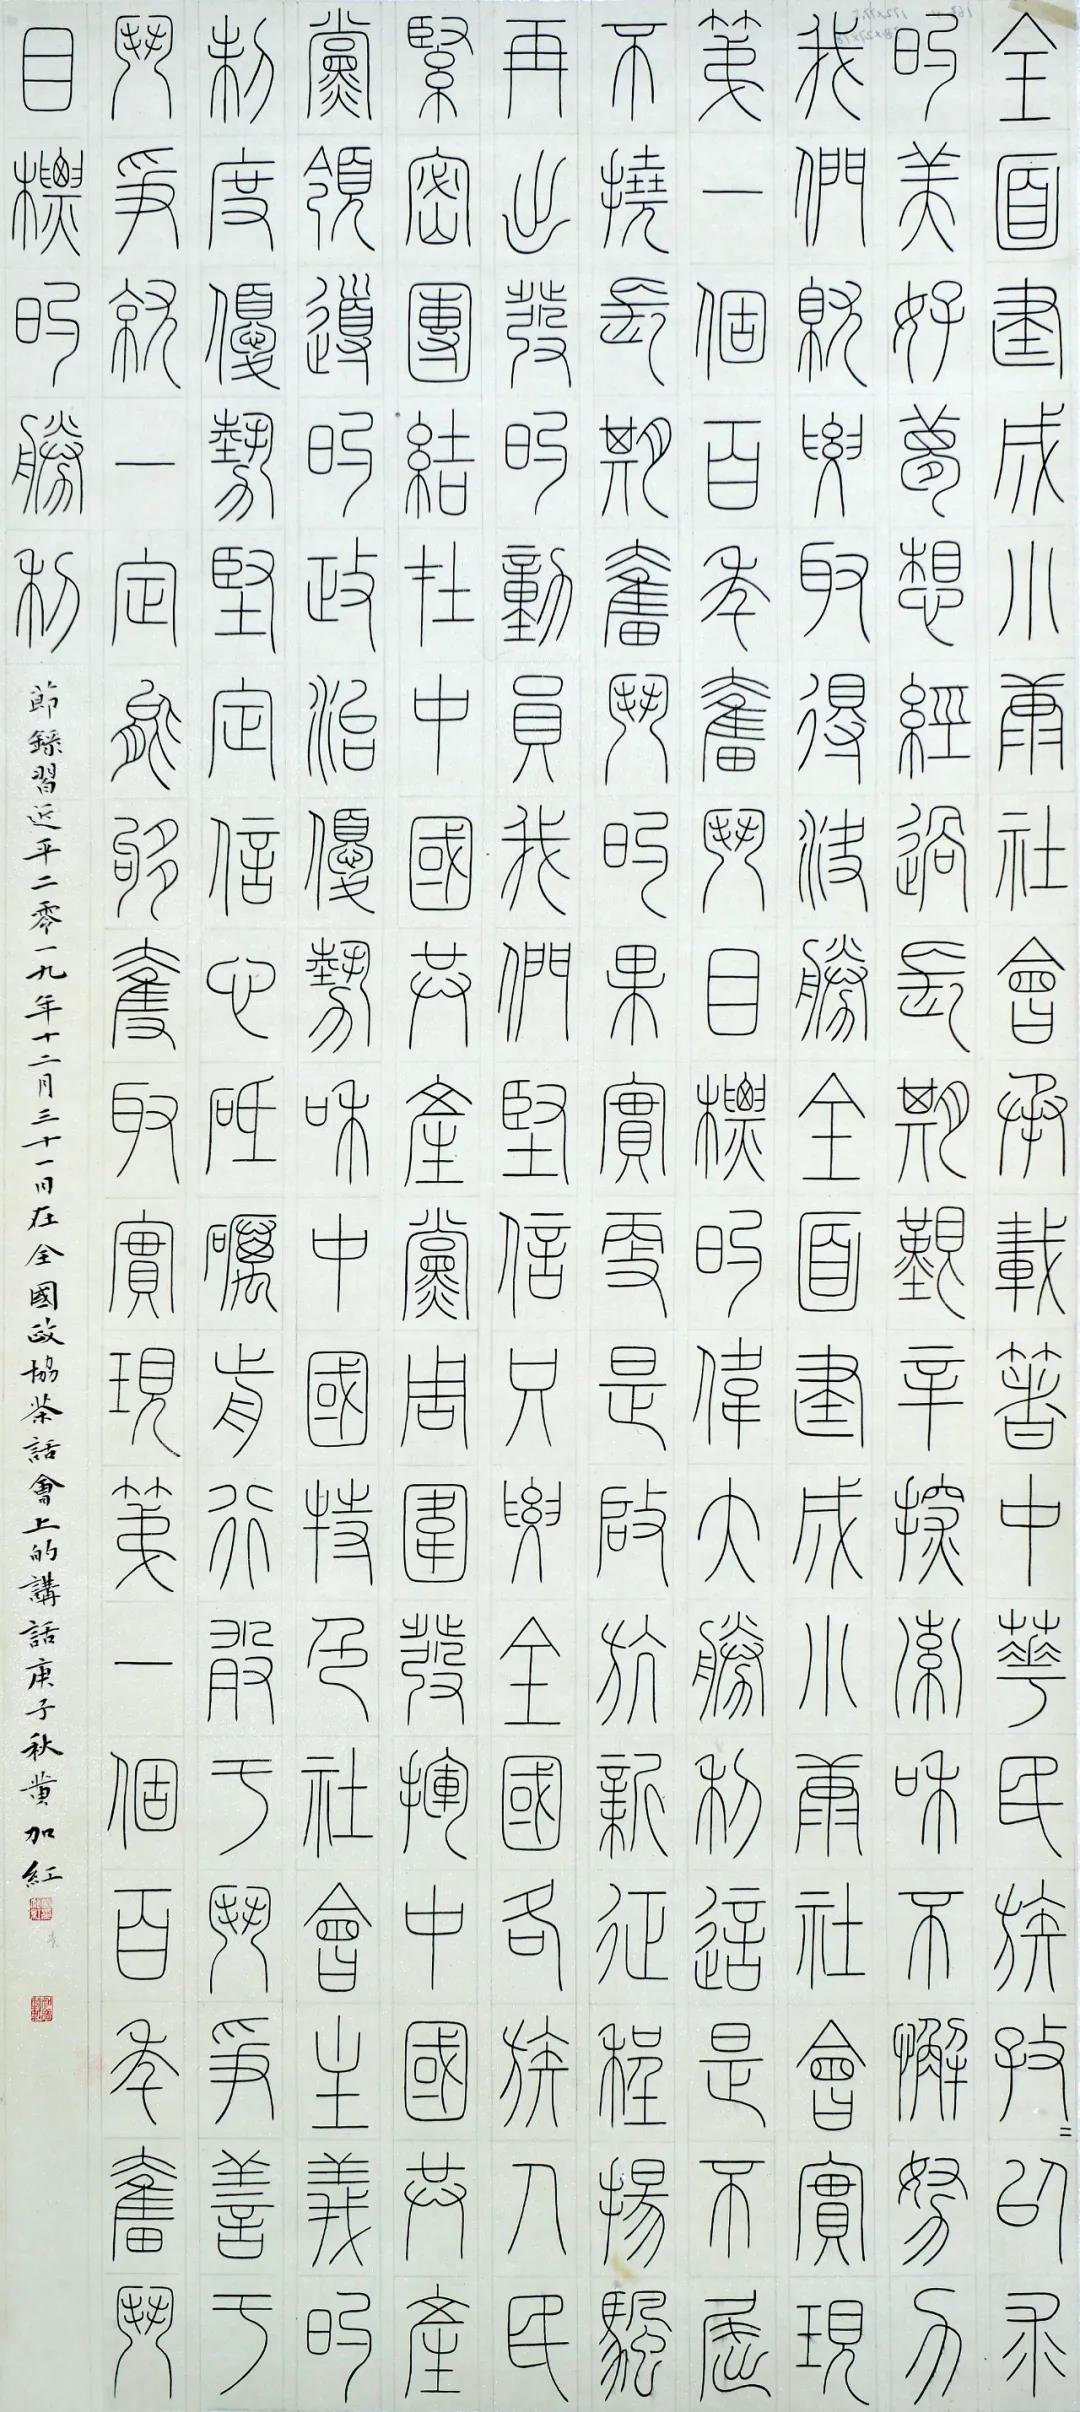 全面建成小康社會承載著中華民族孜〻以求
的美好夢想經過長期艱辛探索和不懈努力
我們就要取得決勝全面建成小康社會實現
第一個百年奮鬥目標的偉大勝利這是不屈
不撓長期奮鬥的果實更是啟航新征程揚帆
再出發的動員我們堅信只要全國各族人民
緊密團結在中國共產黨周圍發揮中國共產
黨領導的政治優勢和中國特色社會主義的
制度優勢堅定信心砥礪前行敢于鬥爭善于
鬥爭就一定能夠奪取實現第一個百年奮鬥
目標的勝利
節錄習近平二零一九年十二月三十一日在全國政協茶話會上的講話庚子秋黃加紅